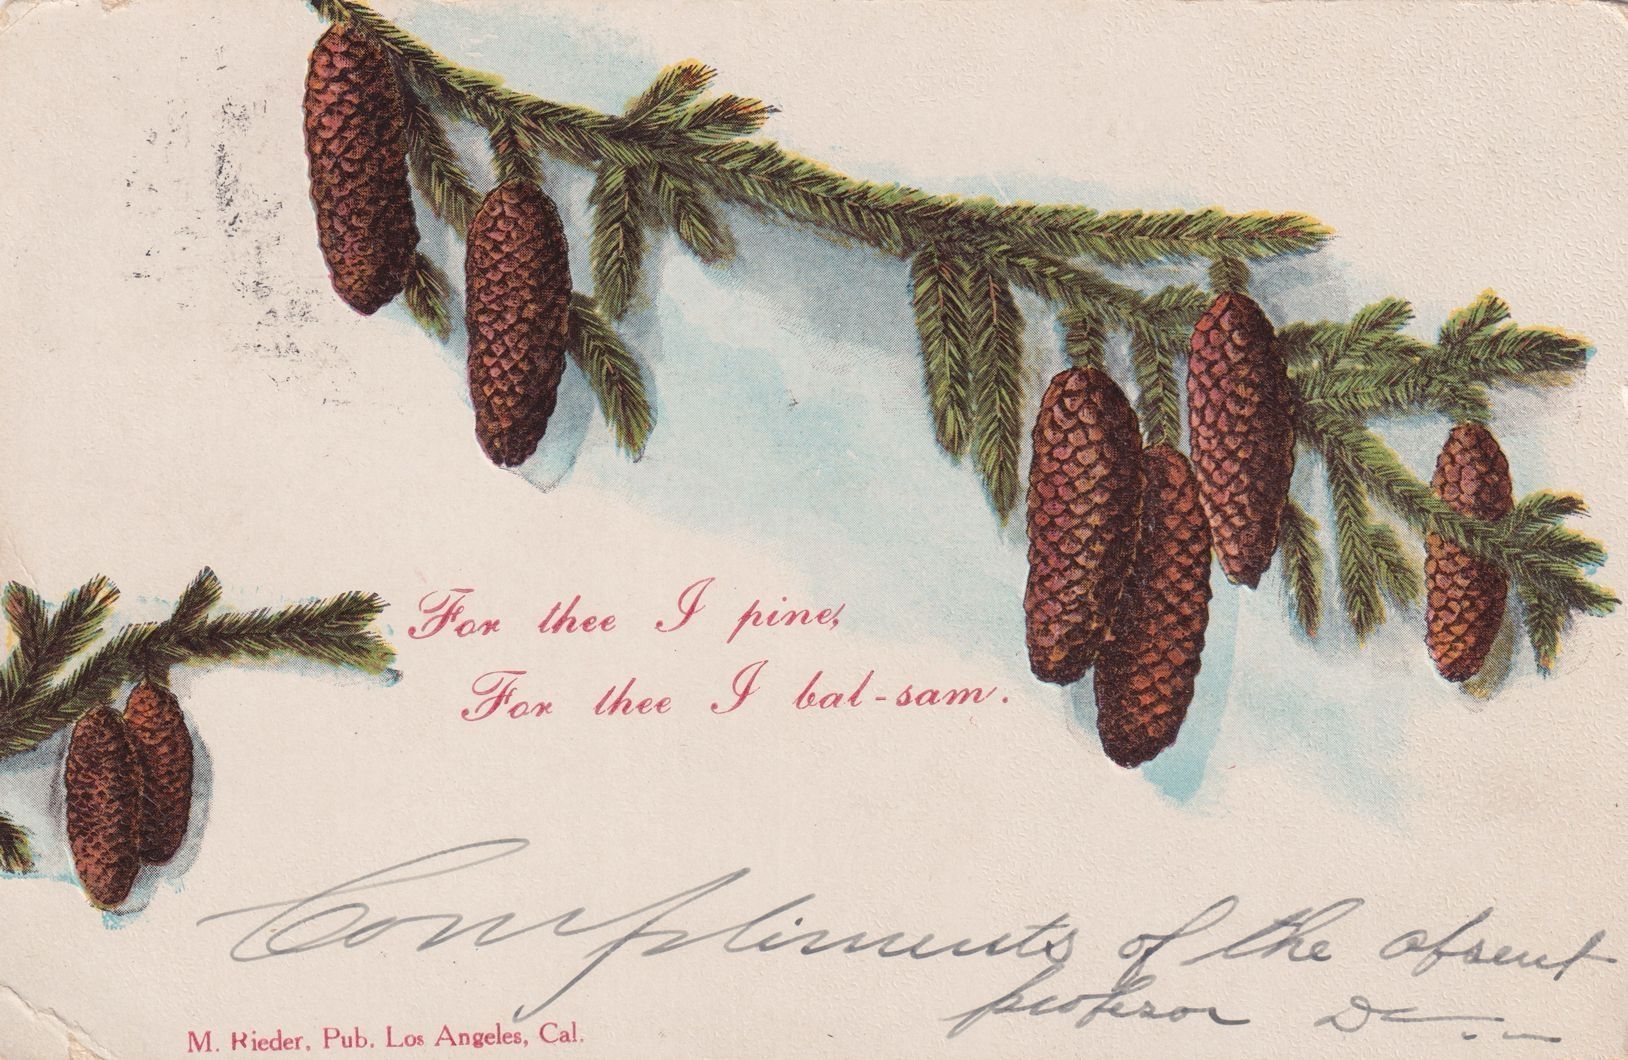 For thee I pine,
For thee I bal-sam.
Compliments of the absent
professor D
M. Rieder, Pub. Los Angeles, Cal.